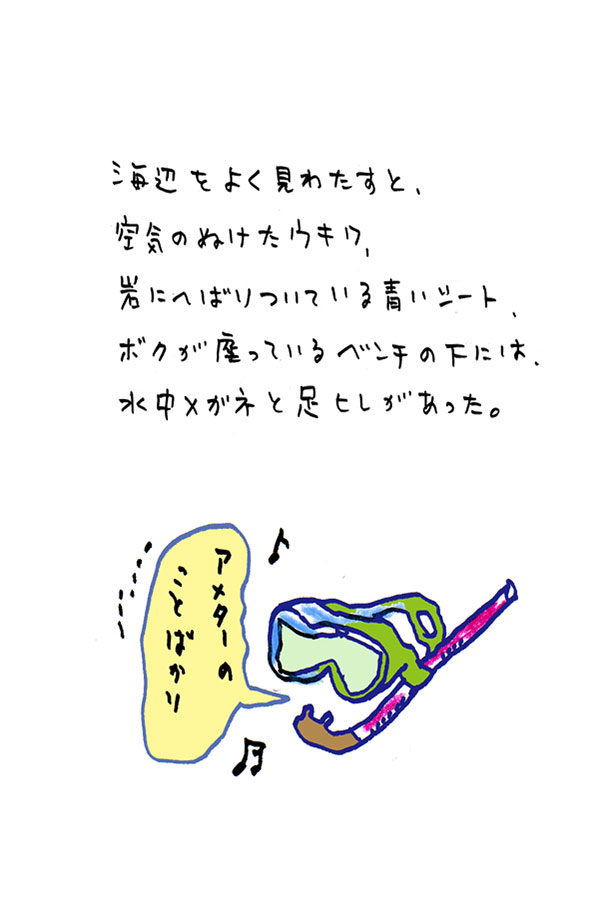 海辺をよく見わたすと、
空気のぬけたウキワ、
岩にへばりついている青いシート、
ボクが座っているベンチの下には、
水中メガネと足ヒレがあった。
アメターの
ことばかり